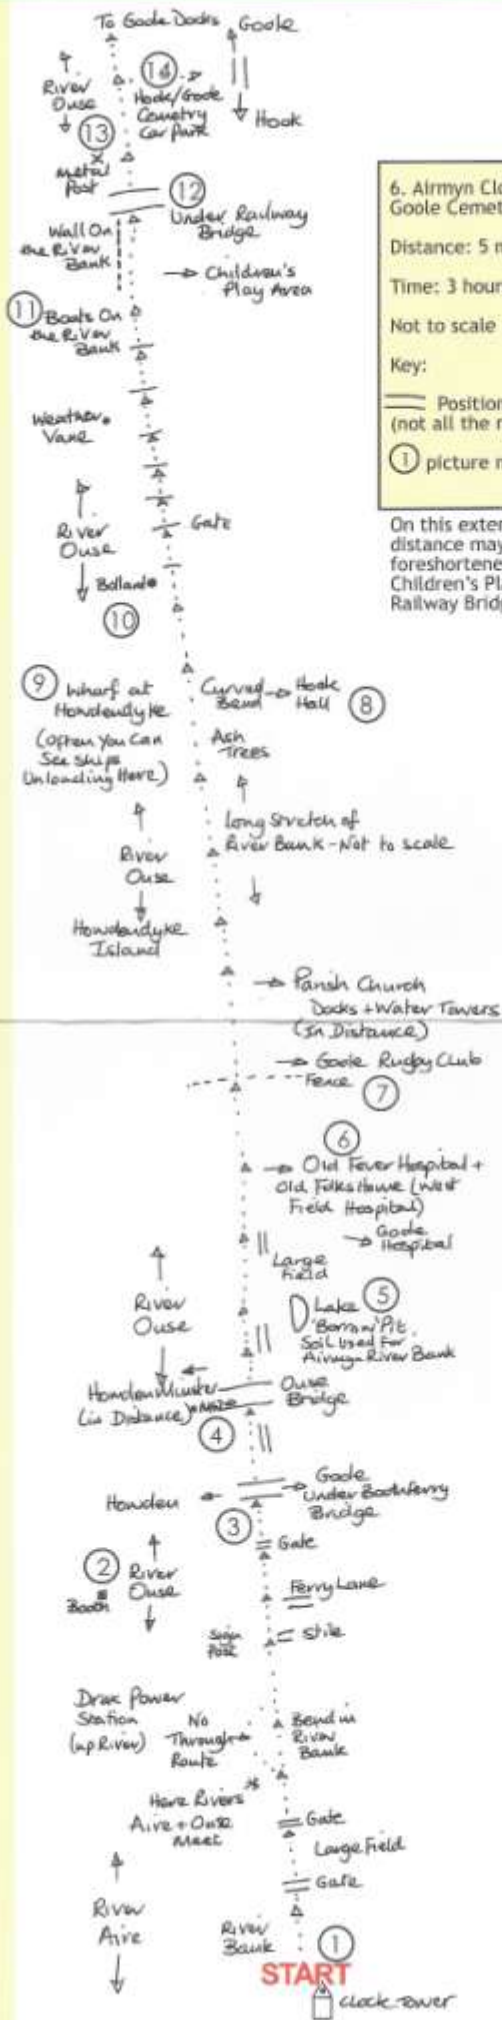 To Goole Docks
Goole
River
Ouse
14
Hook/Goole
Cemetry
Car Park
Hook
13
Metal
Post
12
Under Railway
Bridge
Wall On
the River
Bank
Children's
Play Area
11
Boats On
the River
Bank
Weather
Vane
River
Ouse
Gate
Bollard
10
9
Wharf at
Howdendyke
(often You Can
See Ships
Unloading Here)
Curved
Bend
Hook
Hall
8
Ash
Trees
Long Stretch of
River Bank - Not to scale
River
Ouse
Howdendyke
Island
Parish Church
Docks + Water Towers
(In Distance)
Goole Rugby Club
Fence
7
6
Old Fever Hospital +
Old Folks Home (West
Field Hospital)
Goole
Hospital
Large
Field
River
Ouse
Lake
5
'Borrow' Pit
Soil Used For
Airmyn River Bank
Howden Minster
(in Distance)
Ouse
Bridge
4
Howden
Goole
Under Boothferry
Bridge
3
Gate
2
River
Ouse
Booth
Ferry Lane
Sign
Post
Stile
Drax Power
Station
(up River)
No
Through
Route
Bend in
River
Bank
Here Rivers
Aire + Ouse
Meet
Gate
Large Field
Gate
River
Aire
River
Bank
1
START
Clock Tower
6. Airmyn Clo
Goole Cemet
Distance: 5 m
Time: 3 hour
Not to scale
Key:
Position
(not all the r
1 picture n
On this exter
distance may
foreshortene
Children's Pl
Railway Bridg